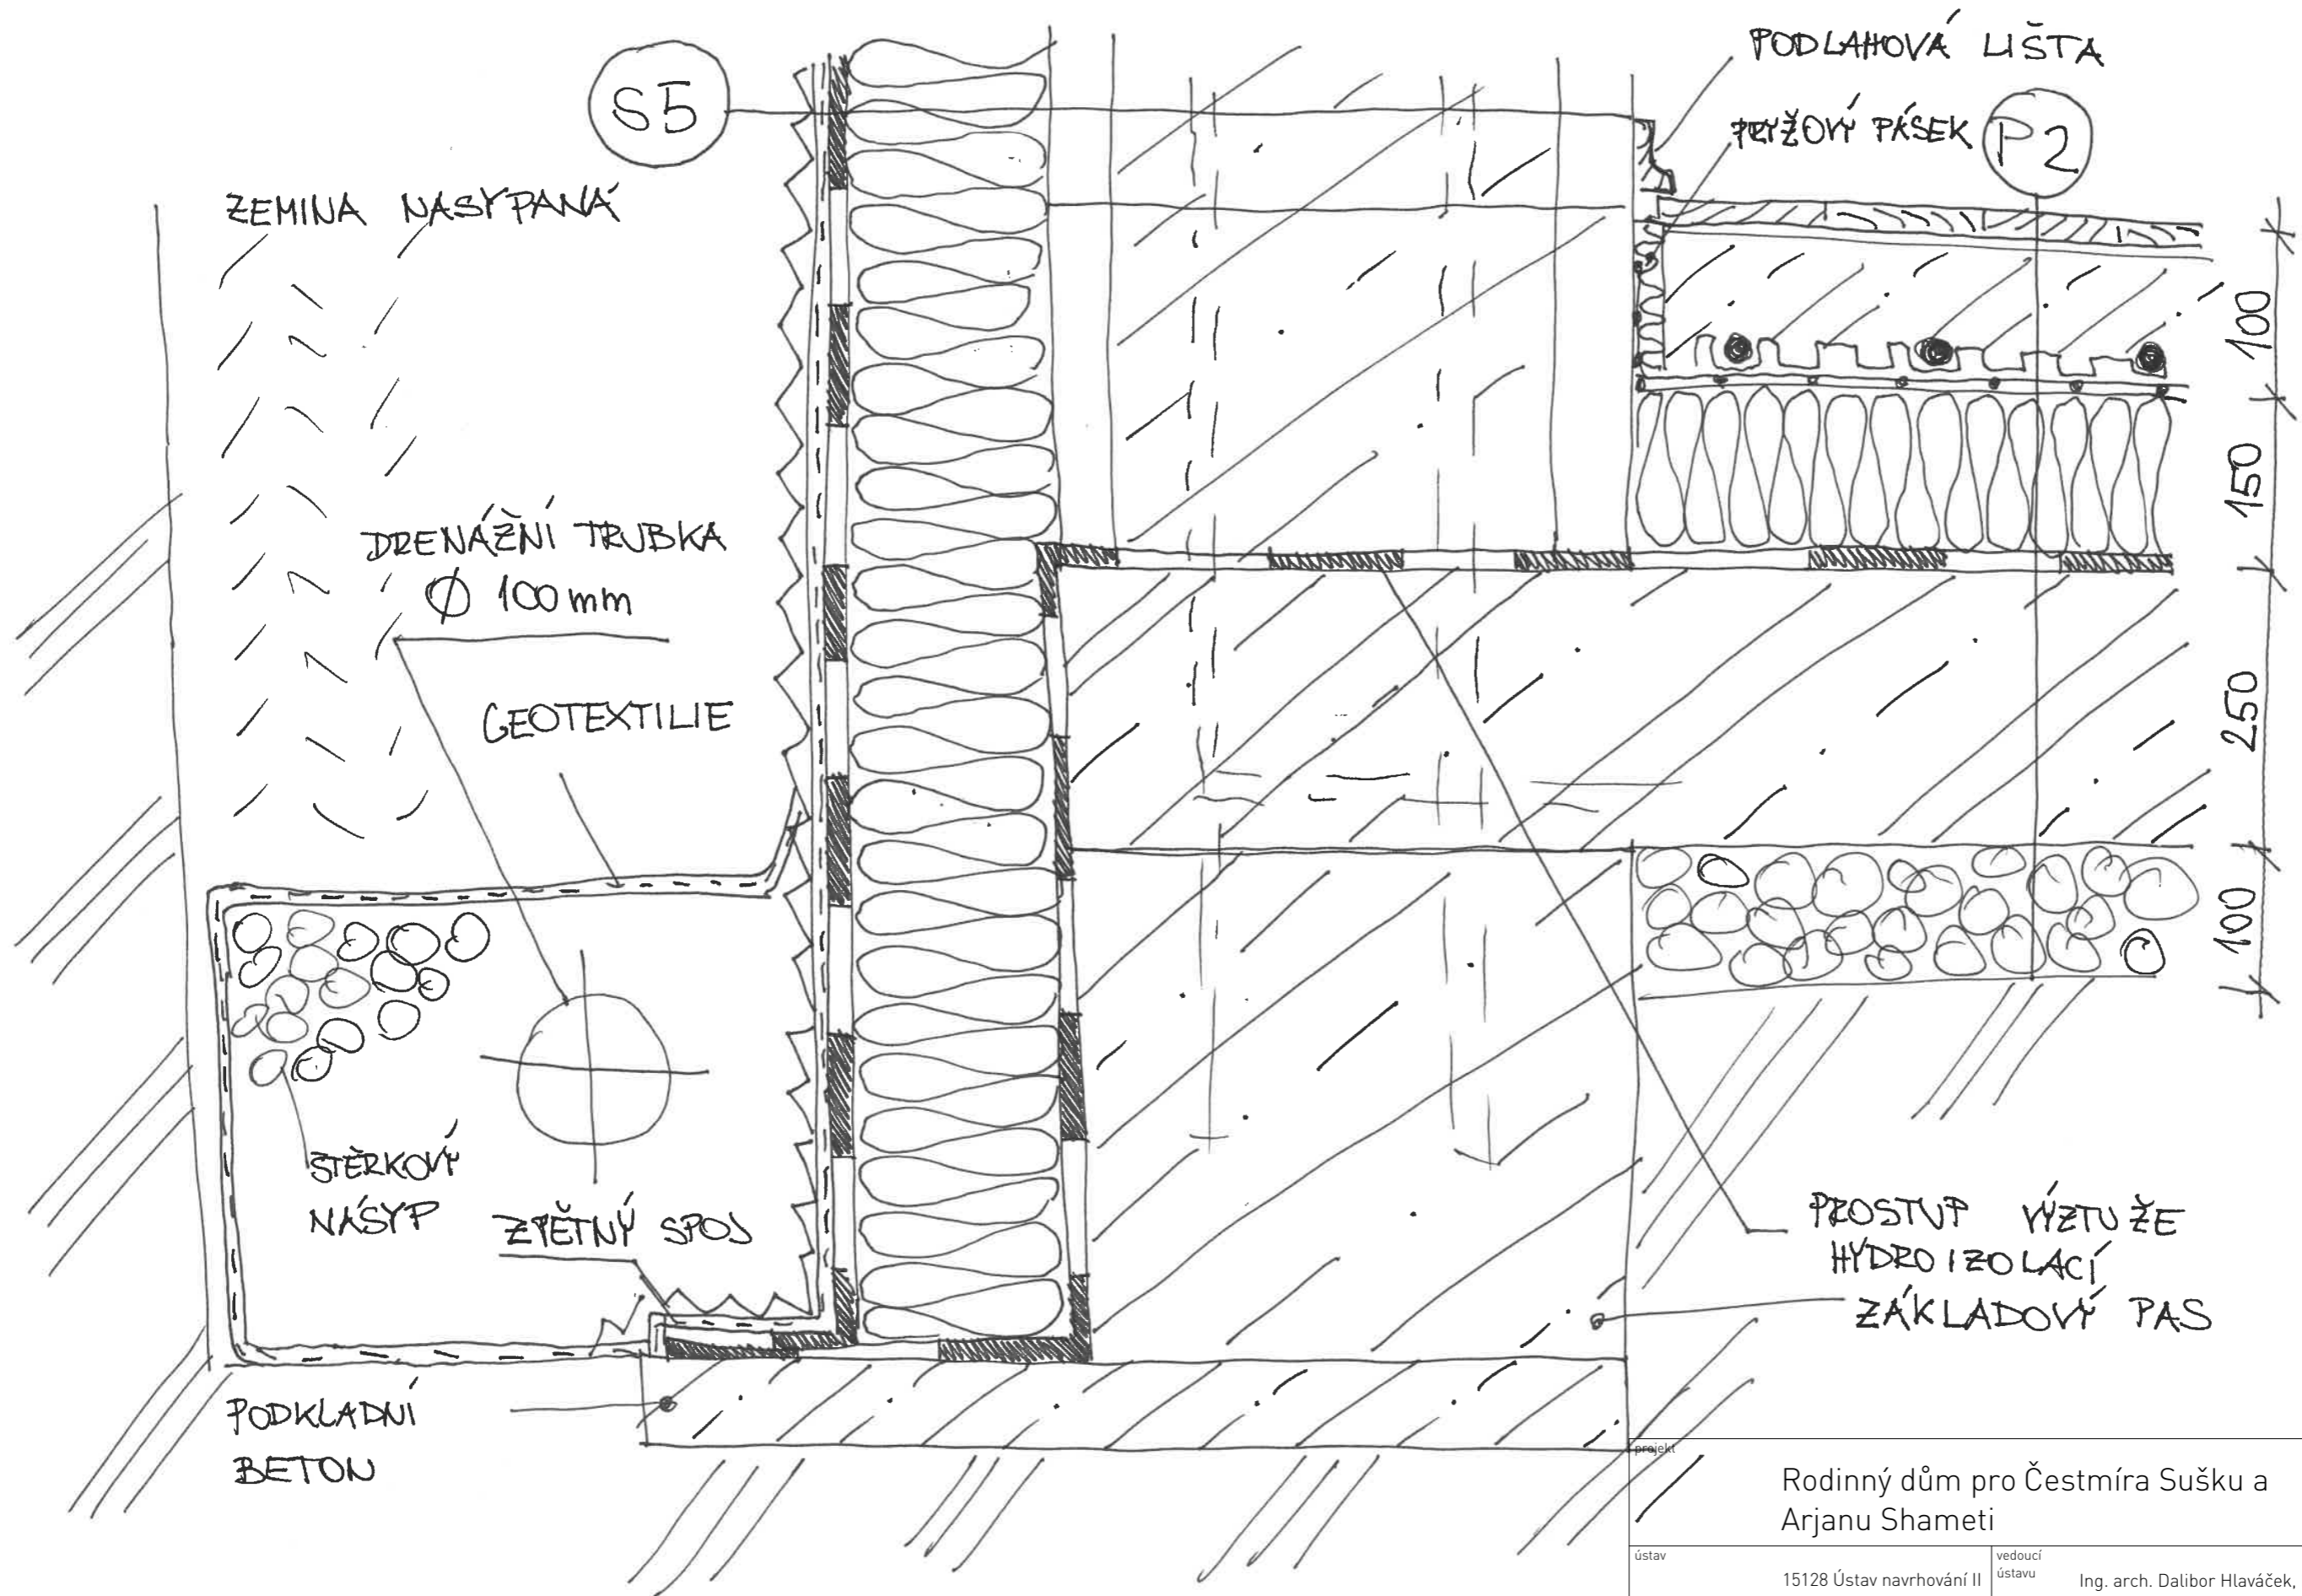 S5
PODLAHOVÁ LIŠTA
PRYŽOVÝ PÁSEK
P2
ZEMINA NASYPANÁ
100
150
250
100
DRENÁŽNÍ TRUBKA
Ø 100mm
GEOTEXTILIE
ŠTĚRKOVÝ
NÁSYP
ZPĚTNÝ SPOJ
PROSTUP VÝZTUŽE
HYDROIZOLACÍ
ZÁKLADOVÝ PAS
PODKLADNÍ
BETON
projekt
Rodinný dům pro Čestmíra Sušku a
Arjanu Shameti
ústav
15128 Ústav navrhování II
vedoucí
ústavu
Ing. arch. Dalibor Hlaváček,